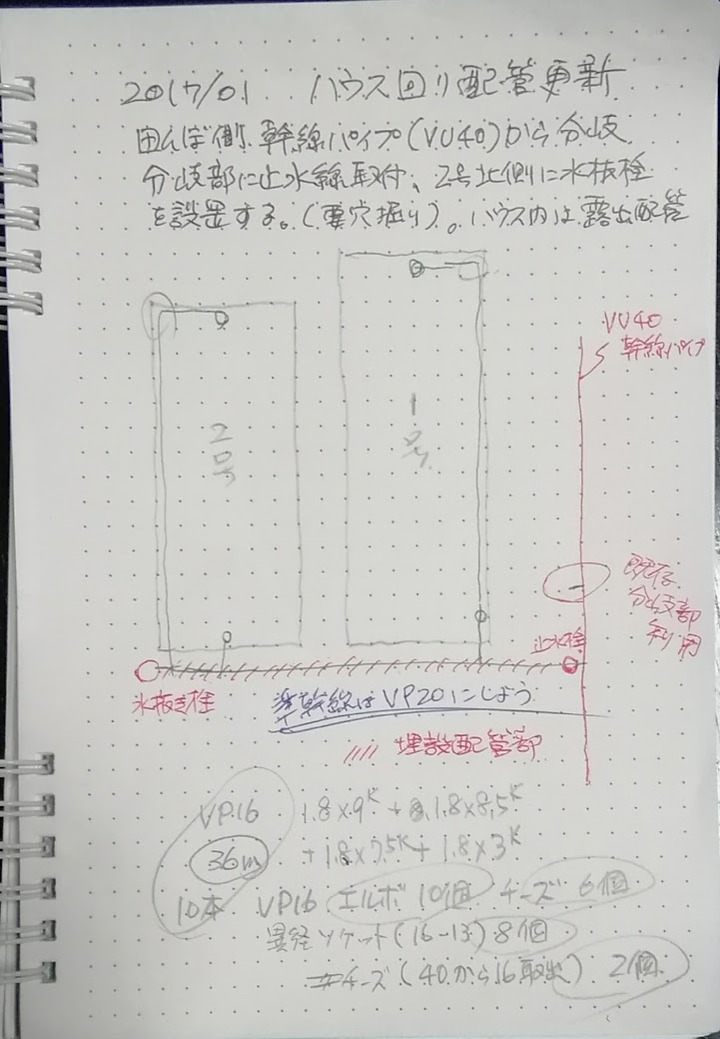 2017/01 ハウス回り配管更新
田んぼ側 幹線パイプ(VU40)から分岐
分岐部に止水線取付、2号北側に水抜栓
を設置する。(要穴掘り)。ハウス内は露出配管
VU40
幹線パイプ
2号
1号
既存
分岐部
利用
止水栓
水抜き栓
準幹線はVP20にしよう
//// 埋設配管部
VP16 1.8×9K + 1.8×8.5K
36m + 1.8×7.5K + 1.8×3K
10本 VP16 エルボ 10個 チーズ 6個
異経ソケット(16-13) 8個
チーズ(40から16取出) 2個